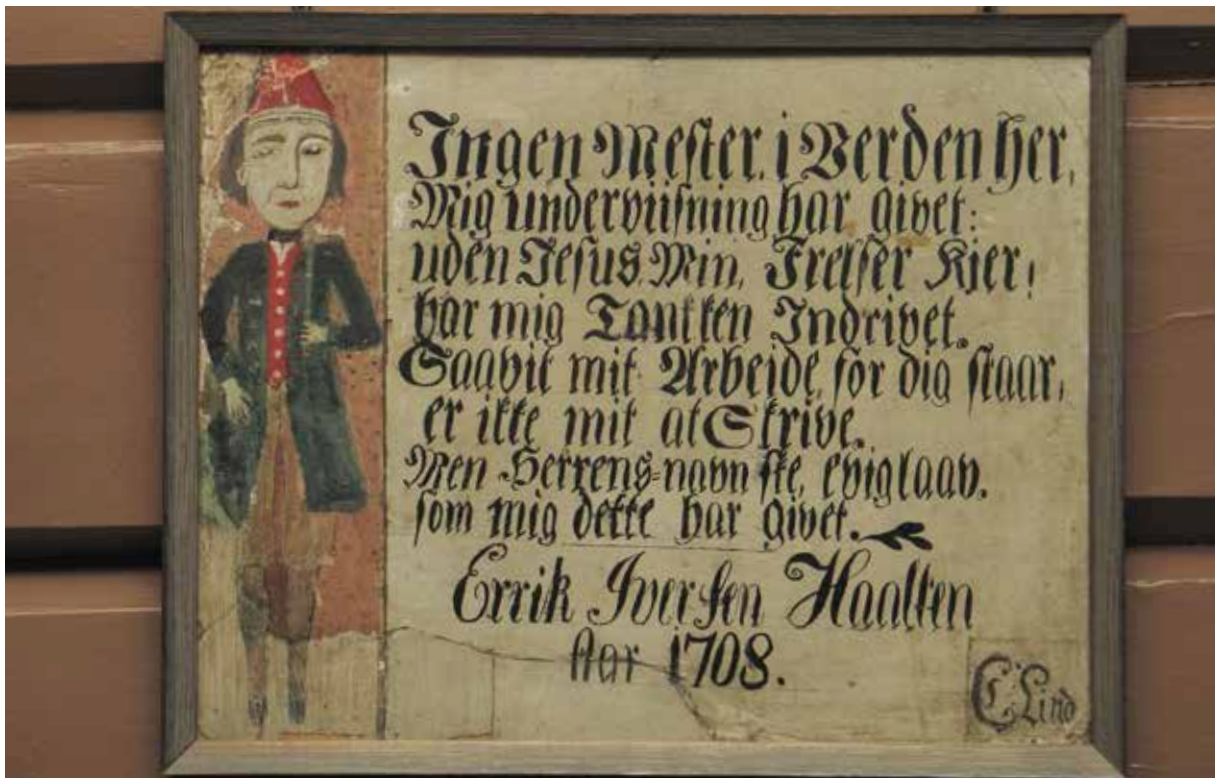 Ingen Mester. i Verden her,
Mig underviisning har givet:
uden Jesus. Min, Frelser Kier!
har mig Tankken Indrivet.
Saavit mit Arbeide, for dig staar,
er ikke mit at Skrive.
Men Herrens=navn ske, eviglaav.
som mig dette har givet.
Errik Iversen Haalten
Aar 1708.
C. Lind